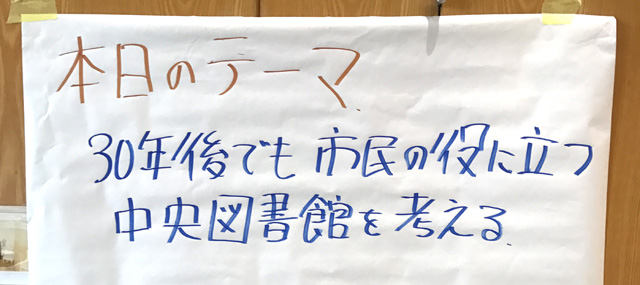 本日のテーマ
30年後でも市民の役に立つ
中央図書館を考える